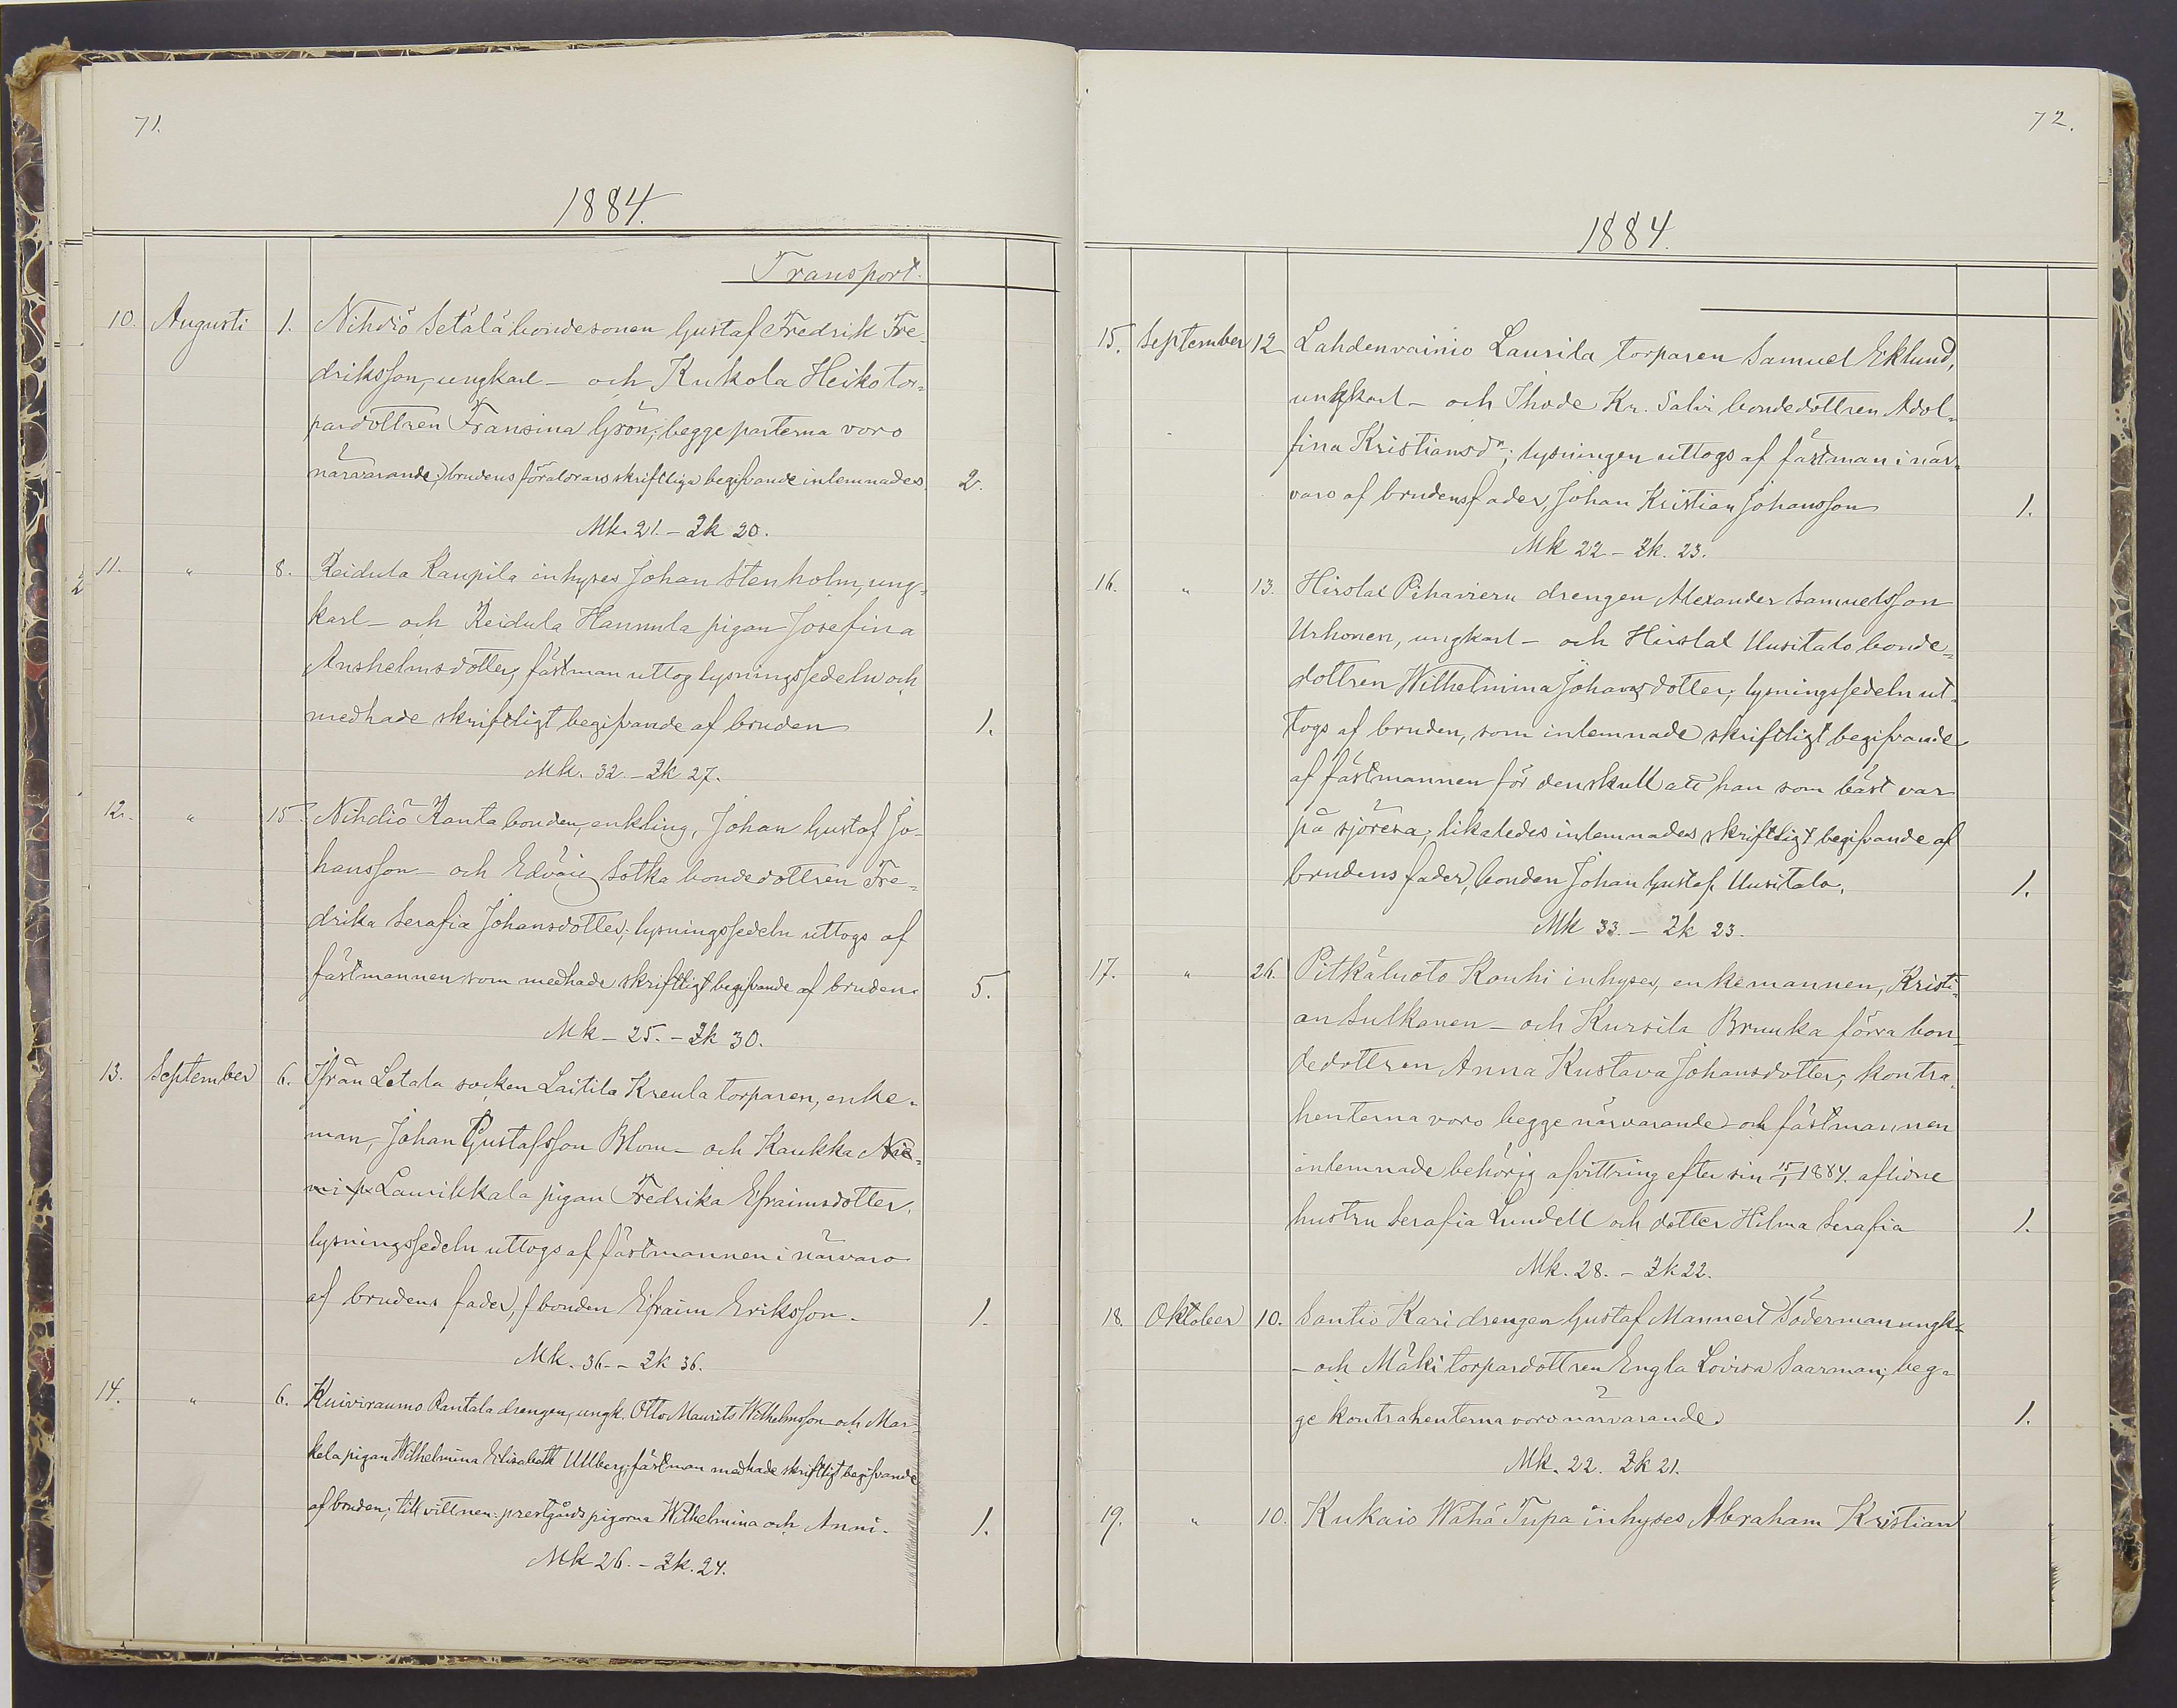 71.
1884.
Transport.
10. Augusti 1. Nihdiö Setälä bondesonen Gustaf Fredrik Fre-
driksson, ungkarl – och Kukola Heiko tor-
pardottren Fransina Grön; begge parterna voro
närvarande; brudens föräldrars skriftliga begifvande inlemnades. 2.
Mk. 21. – Zk 20.
11. " 8. Reidula Kaupila inhyses Johan Stenholm, ung-
karl – och Reidula Hannula pigan Josefina
Anshelmsdotter; fästman uttog lysningssedeln och
medhade skriftligt begifvande af bruden 1.
Mk. 32. – Zk 27.
12. " 15. Nihdiö Ranta bonden, enkling, Johan Gustaf Jo-
hansson – och Edväis Sotka bondedottren Fre-
drika Serafia Johansdotter; lysningssedeln uttogs af
fästmannen som medhade skriftligt begifvande af bruden. 5.
Mk – 25. – Zk 30.
13. September 6. Ifrån Letala socken Laitila Kreula torparen, enke-
man, Johan Gustafsson Blom – och Kaukka Nie-
mi p Laurikkala pigan Fredrika Efraimsdotter,
lysningssedeln uttogs af fästmannen i närvaro
af brudens fader, f bonden Efraim Eriksson. 1.
Mk. 36. – Zk 36.
14. " 6. Kuiviraumo Rantala drengen, ungk. Otto Maurits Wilhelmsson och Mar-
kela pigan Wilhelmina Elisabeth Ullberg; fästman medhade skriftligt begifvande
af bruden; till vittnen: prestgårds pigorna Wilhelmina och Anni. 1.
Mk 26. – Zk. 24.
72.
1884.
15. September 12 Lahdenvainio Laurila torparen Samuel Eklund,
ungkarl – och Ihode Kr. Salvi bondedottren Adol-
fina Kristiansdr; lysningen uttogs af fästman i när-
varo af brudens fader, Johan Kristian Johansson 1.
Mk 22 – Zk. 23.
16. " 13. Hirslax Pihavieru drengen Alexander Samuelsson
Urhonen, ungkarl – och Hirslax Uusitalo bonde-
dottren Wilhelmina Johansdotter; lysningssedeln ut-
togs af bruden, som inlemnade skriftligt begifvande
af fästmannen för den skull att han som bäst var
på sjöresa; likaledes inlemnades skriftligt begifvande af
brudens fader, bonden Johan Gustaf Uusitalo. 1.
Mk 33. – Zk 23.
17. " 26. Pitkäluoto Kouhi inhyses, enkemannen, Kristi-
an Sulkanen – och Kursila Bruuka förra bon-
dedottren Anna Kustava Johansdotter; kontra-
henterna voro begge närvarande och fästmannen
inlemnade behörig afvittring efter sin 15/1 1884. aflidne
hustru Serafia Lundell och dotter Hilma Serafia 1.
Mk. 28. – Zk 22.
18. Oktober 10. Santio Kari drengen Gustaf Mannert Söderman ungk-
– och Mäki torpardottren Engla Lovisa Saarman; beg-
ge kontrahenterna voro närvarande. 1.
Mk. 22. Zk 21.
19. " 10. Kukais Wähä Tupa inhyses Abraham Kristian